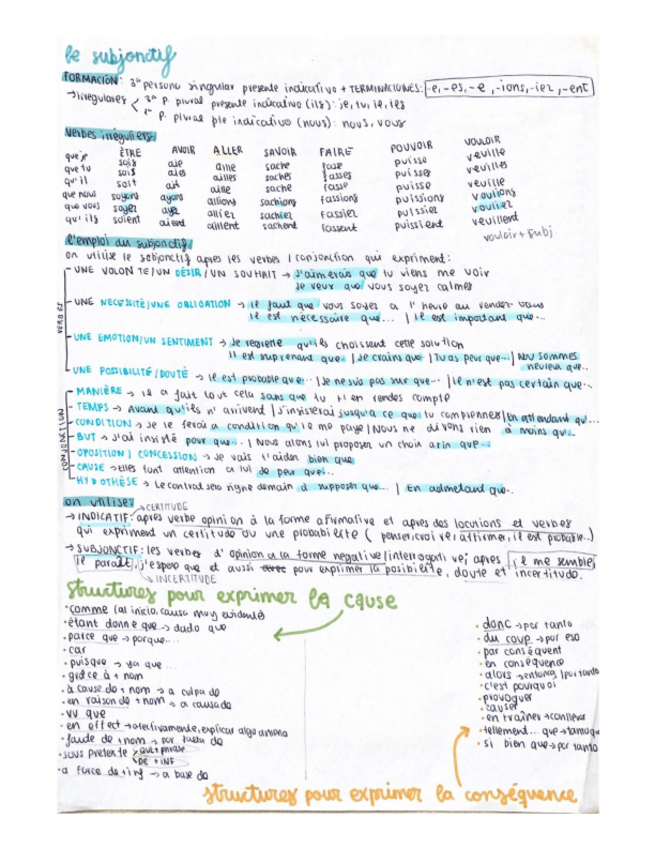 le subjonctif
FORMACIÓN: 3ª persona singular presente indicativo + TERMINACIONES: -e, -es, -e, -ions, -iez, -ent
→ irregulares < 3ª p. plural presente indicativo (ils): je, tu, il, ils
1ª p. plural pte indicativo (nous): nous, vous
Verbes irréguliers
ÊTRE AVOIR ALLER SAVOIR FAIRE POUVOIR VOULOIR
que je sois aie aille sache fasse puisse veuille
que tu sois aies ailles saches fasses puisses veuilles
qu'il soit ait aille sache fasse puisse veuille
que nous soyons ayons allions sachions fassions puissions voulions
que vous soyez ayez alliez sachiez fassiez puissiez vouliez
qu'ils soient aient aillent sachent fassent puissient veuillent
vouloir + subj
l'emploi du subjonctif
on utilise le subjonctif apres les verbes / conjonction qui expriment:
VERBES
UNE VOLONTE/UN DÉSIR/UN SOUHAIT → J'aimerais que tu viens me voir
Je veux que vous soyez calmes
UNE NECESSITÉ/UNE OBLIGATION → il faut que vous soyez a l'heure au rendez-vous
Il est nécessaire que... | Il est important que...
UNE EMOTION/UN SENTIMENT → Je regrette qu'ils choissent cette solution
Il est surprenant que... | Je crains que | Tu as peur que... | Nou sommes
heureux que...
UNE POSSIBILITÉ/DOUTÉ → il est probable que... | Je ne suis pas sur que... | Il n'est pas certain que...
MANIÈRE → il a fait tout cela sans que tu t'en rendes compte
TEMPS → Avant qu'ils n'arrivent | J'insisterai jusqu'a ce que tu comprennes | En attendant qu'...
CONDITION → Je le ferai a condition qu'il me paye | Nous ne dirons rien à moins qu'...
BUT → J'ai insisté pour que... | Nous alons lui proposer un choix afin que...
OPOSITION / CONCESSION → Je vais t'aider bien que
CAUSE → Elles font attention a lui de peur que...
HYPOTHÈSE → Le contrat sera signe demain à supposer que... | En admettant que...
on utilise:
CERTITUDE
→ INDICATIF: apres verbe opinion à la forme afirmative et apres des locutions et verbes
qui expriment un certitude ou une probabilité (penser, croire, affirmer, il est probable...)
→ SUBJONCTIF: les verbes d'opinion a la forme negative/interrogative; apres il me semble,
il paraît, j'espere que et aussi pour exprimer la posibilité, doute et incertitude.
INCERTITUDE
structures pour exprimer la cause
· comme (al inicio, causa muy evidente)
· étant donne que → dado que
· parce que → porque...
· car
· puisque → ya que...
· grâce à + nom
· à cause de + nom → a culpa de
· en raison de + nom → a causa de
· vu que
· en effect → efectivamente, explicar algo
· faute de + nom → por falta de
· sous pretexte > que + phrase
DE + INF
· a force de + inf → a base de
· donc → por tanto
· du coup → por eso
· par conséquent
· en conséquence
· alors → entonces / por tanto
· c'est pourquoi
· provoquer
· causer
· en traîner → conllevar
· tellement... que →
· si bien que → por tanto
structures pour exprimer la conséquence